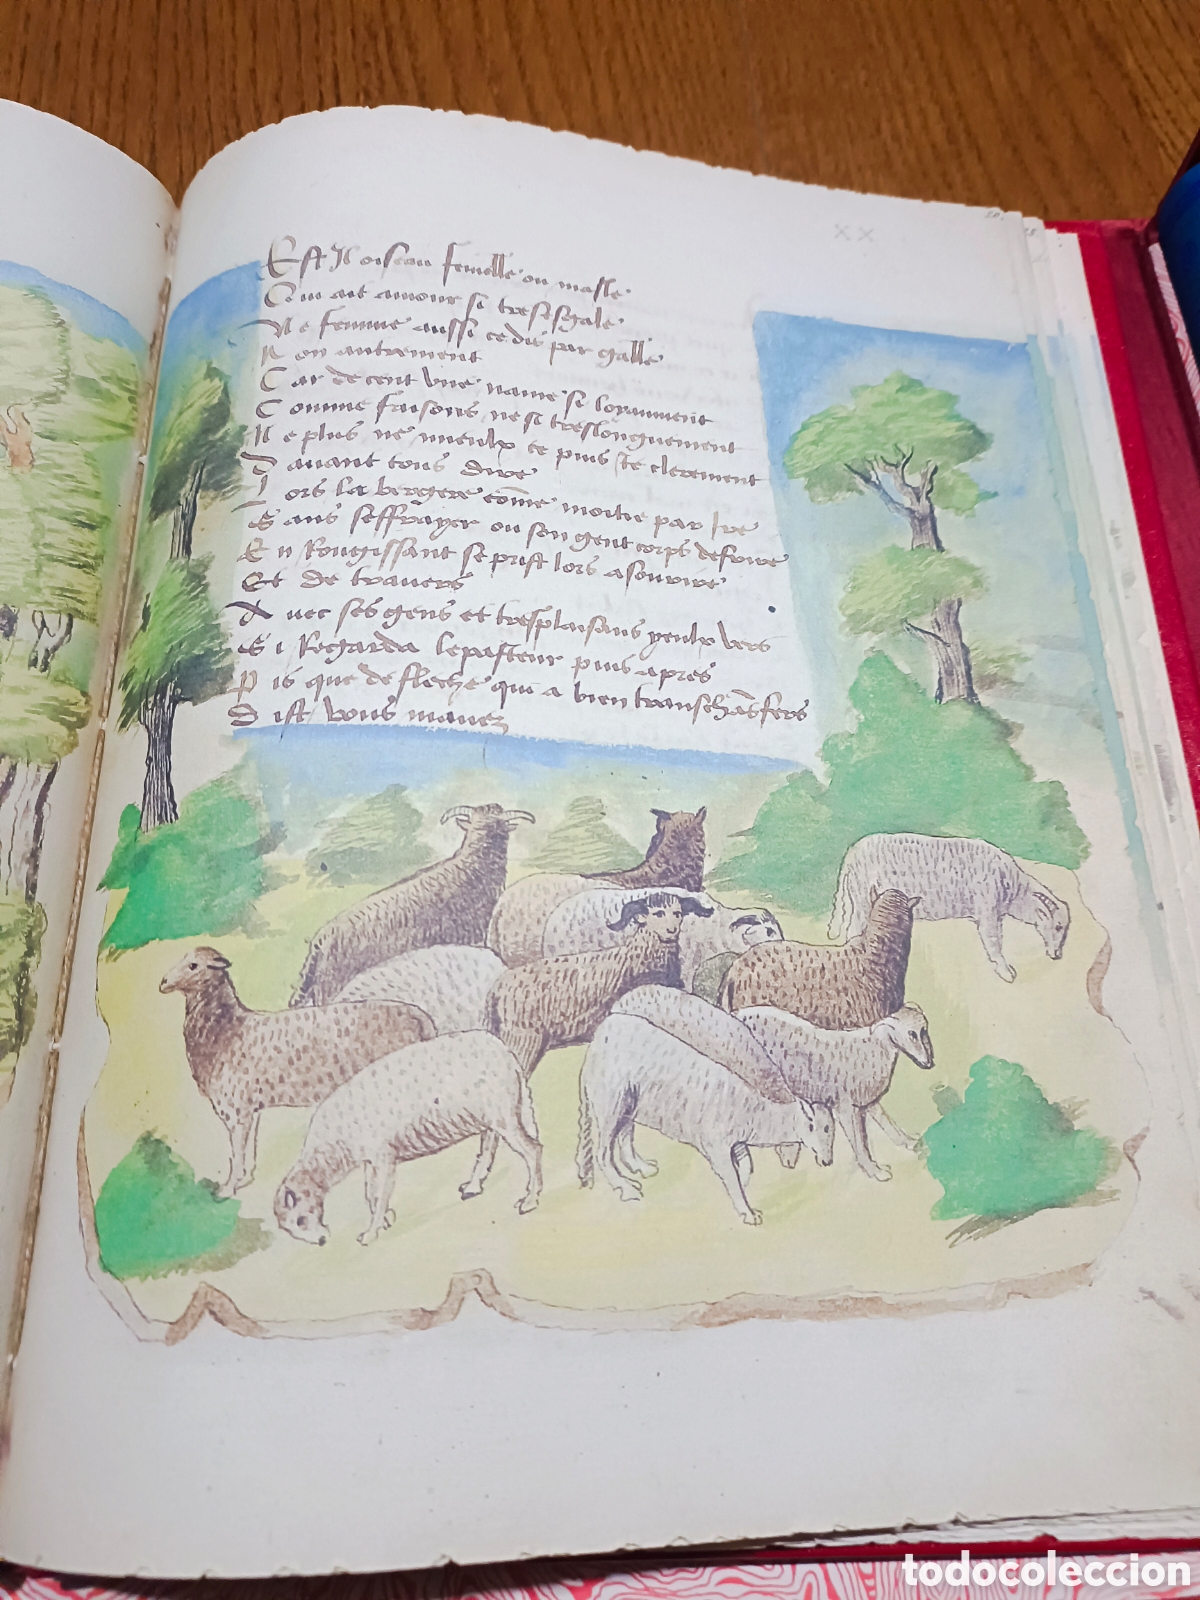 xx
20.
Est Il oiseau femelle ou masle
Qui ait amour si tresesgale
Ne femme aussi ce dis par galle
Non autrement
Car de cent vne naime si loyaument
Comme faisons ne si treslonguement
Ne plus ne mieulx ce puis Ie clerement
Dauant tous dire
Lors la bergere cōme moitie par Ire
Sans seffrayer ou son gent corps defrire
En Rougissant se prist lors a sourire
Et de trauers
Auec ses gens et tresplaisans yeulx vers
Si Regarda le pasteur puis apres
Pis que de fleche qui a bien transch
Dist vous mauez
todocoleccion